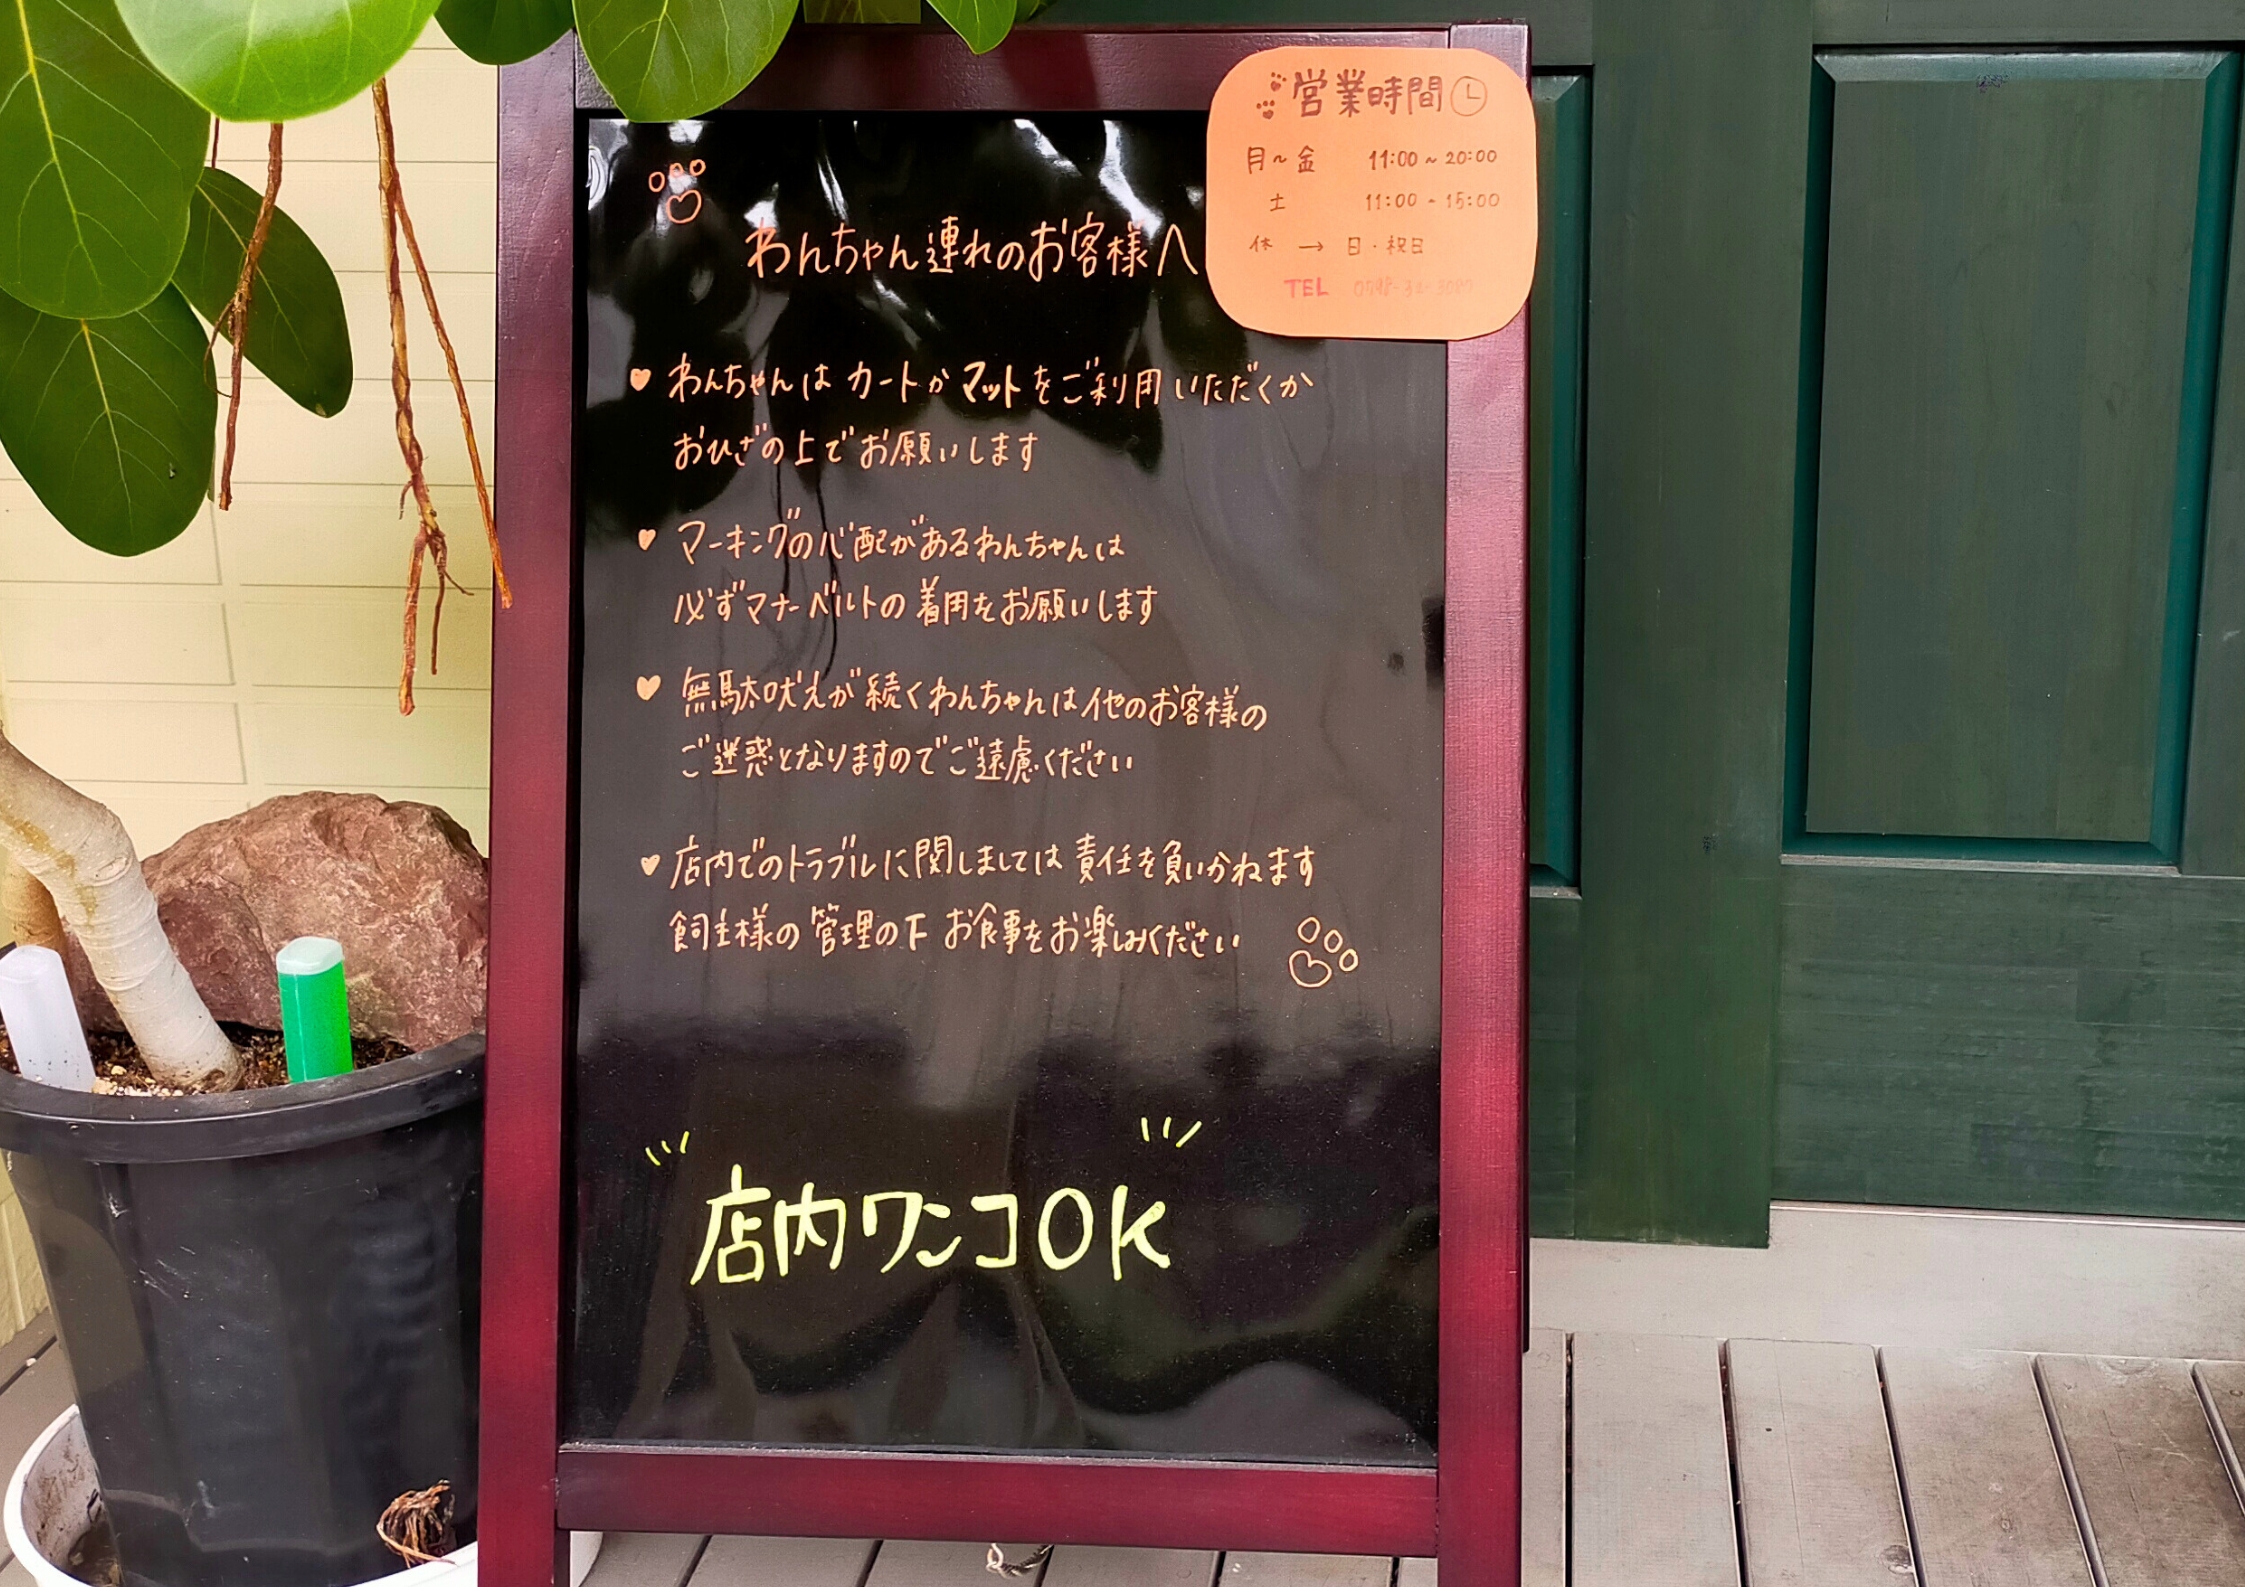 営業時間
月～金 11:00～20:00
土 11:00～15:00
休→日・祝日
TEL
わんちゃん連れのお客様へ
♥わんちゃんはカートかマットをご利用いただくか
おひざの上でお願いします
♥マーキングの心配があるわんちゃんは
必ずマナーベルトの着用をお願いします
♥無駄吠えが続くわんちゃんは他のお客様の
ご迷惑となりますのでご遠慮ください
♥店内でのトラブルに関しましては責任を負いかねます
飼主様の管理の下お食事をお楽しみください
店内ワンコOK